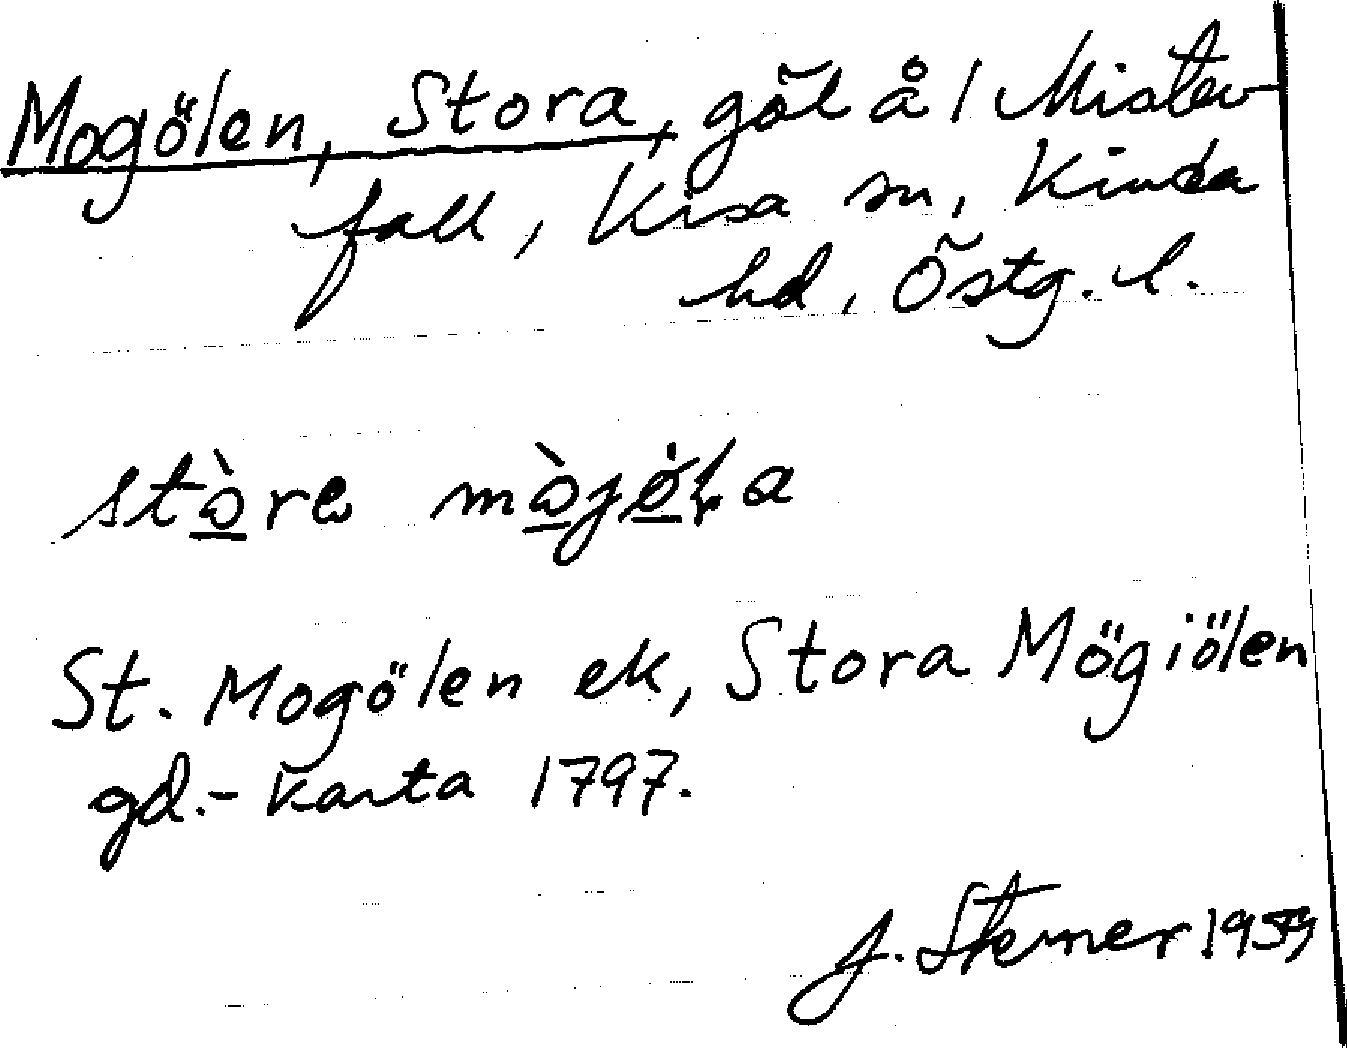 Mogölen, Stora, göl å 1 Mister-
fall, Kisa sn, Kinda
hd, Östg. l.
stòre mòjö́ɫa
St. Mogölen ek, Stora Mögiölen
gd.- karta 1797.
J. Sterner